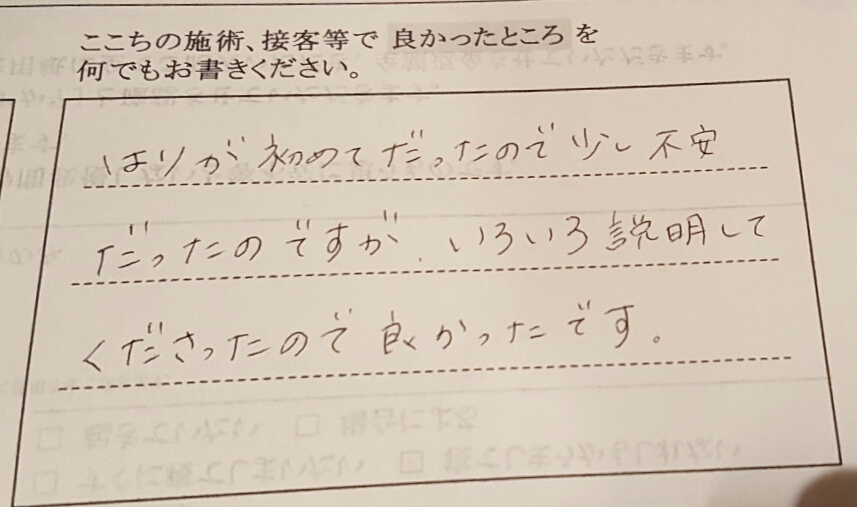 ここちの施術、接客等で 良かったところ を
何でもお書きください。
はりが 初めて だったので 少し 不安
だったのですが、いろいろ説明して
くださったので 良かったです。